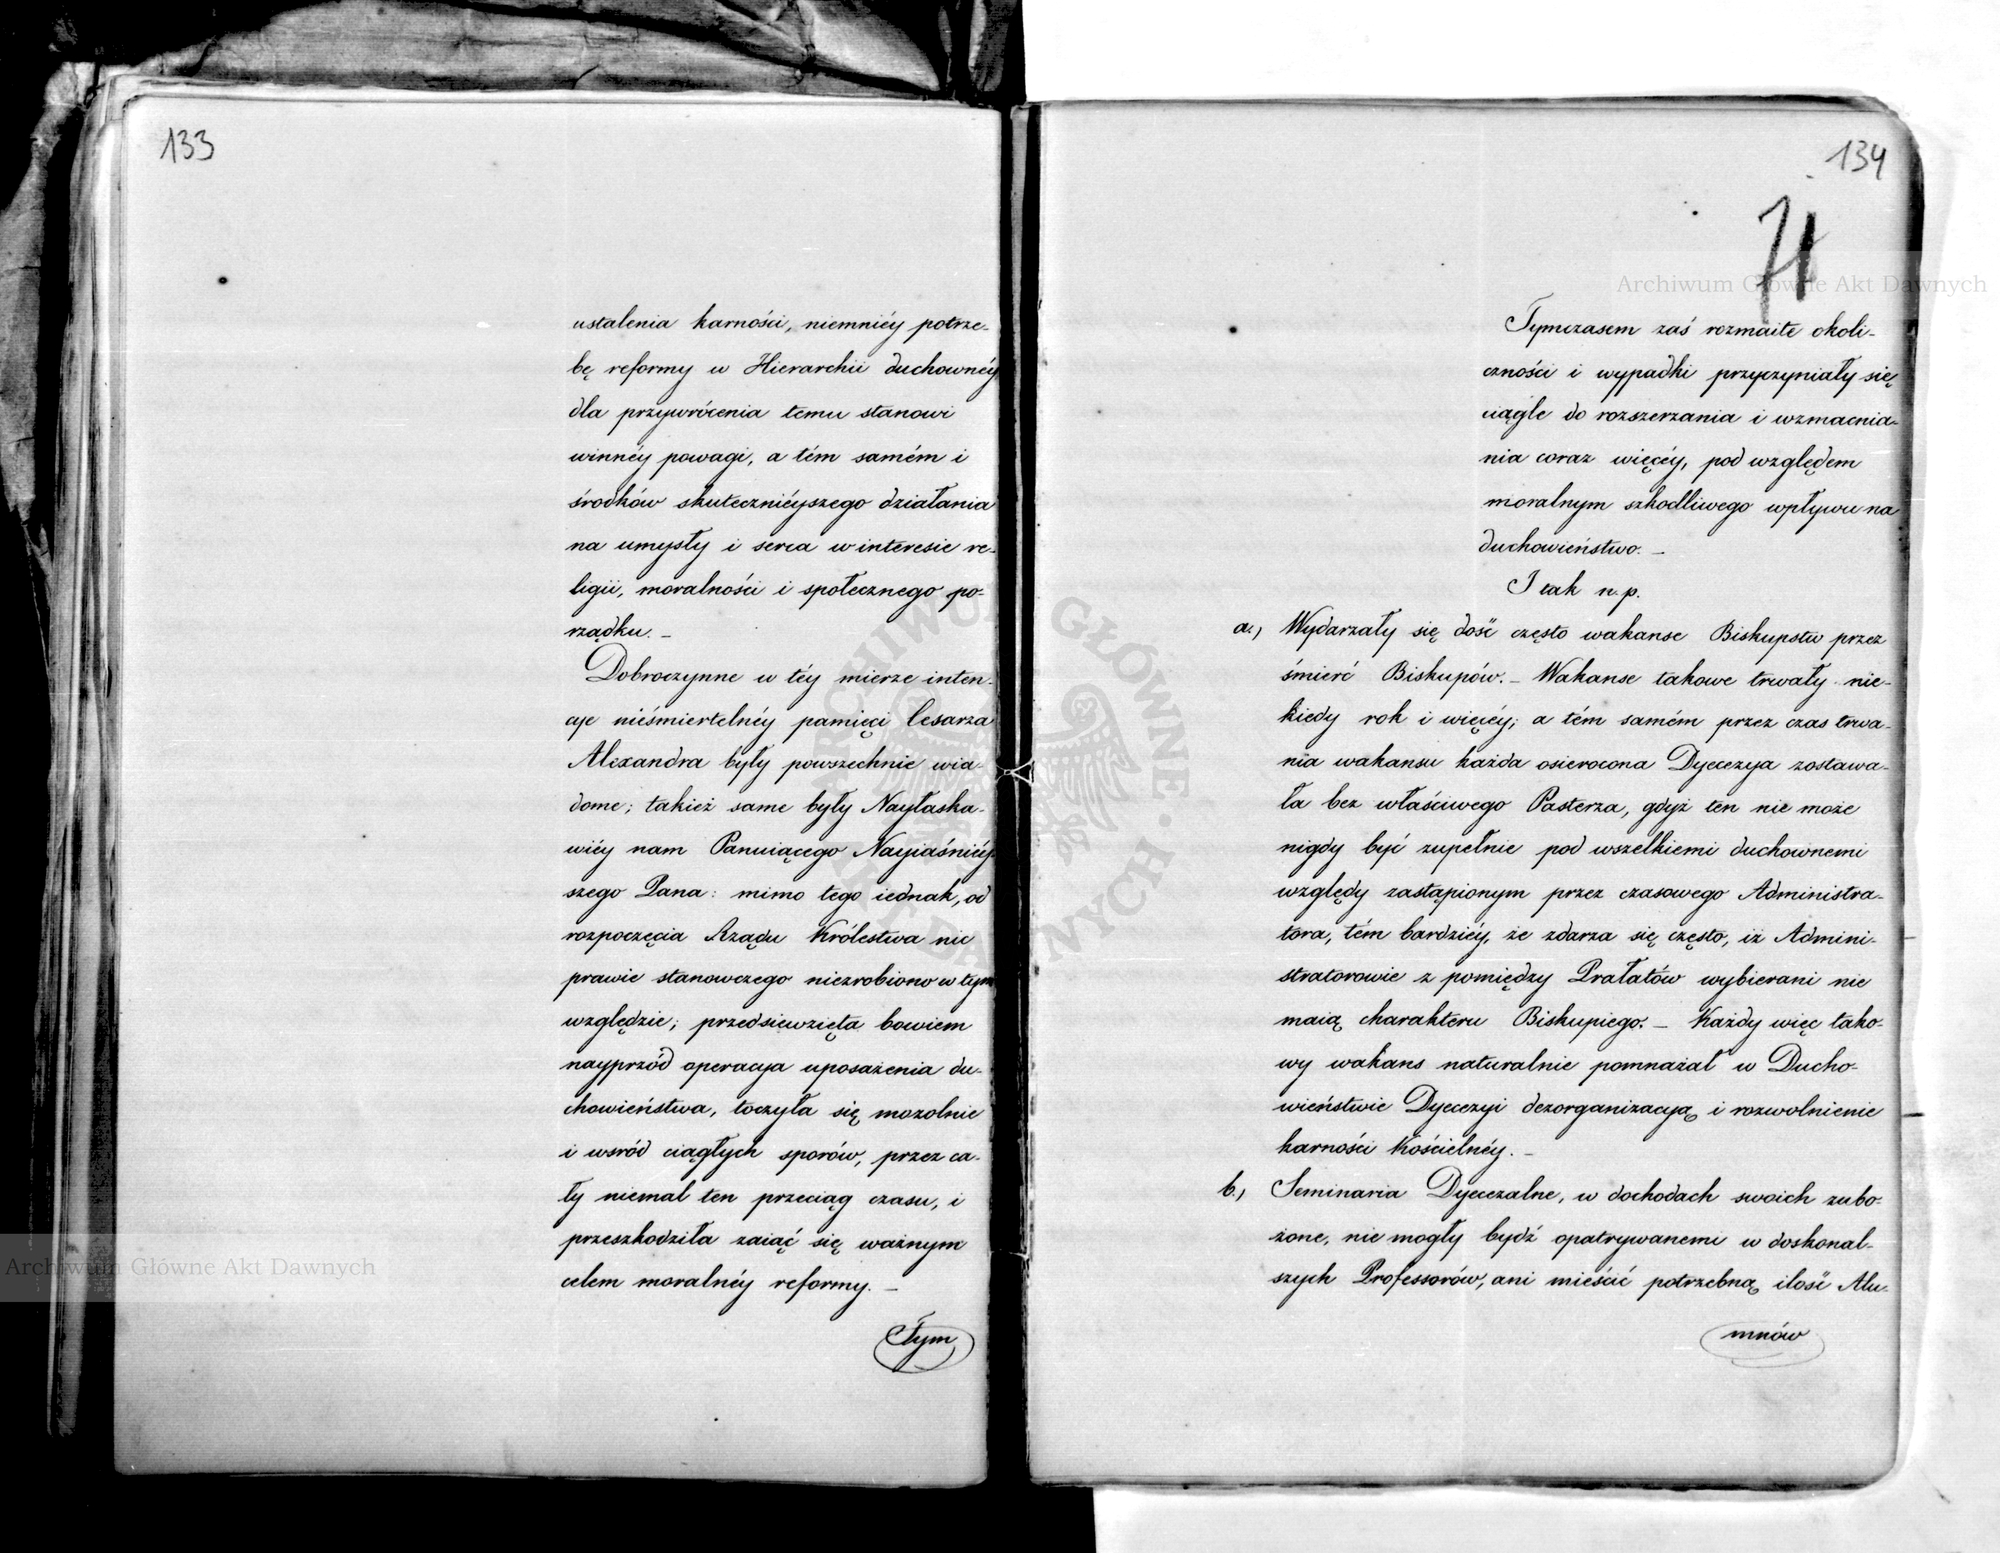 133
ustalenia karności, niemniéy potrze-
bę reformy w Hierarchii duchownéy
dla przywrócenia temu stanowi
winnéy powagi, a tém samém i
środków skuteczniéyszego działania
na umysły i serca w interesie re-
ligii, moralności i społecznego po-
rządku. –
Dobroczynne w téy mierze inten-
cye nieśmiertelnéy pamięci Cesarza
Alexandra były powszechnie wia-
dome; takież same były Nayłaska-
wiéy nam Panuiącego Nayiaśniéy-
szego Pana: mimo tego iednak, od
rozpoczęcia Rządu Królestwa nic
prawie stanowczego niezrobiono w tym
względzie; przedsięwzięta bowiem
nayprzód operacya uposażenia du-
chowieństwa, toczyła się mozolnie
i wsród ciągłych sporów, przez ca-
ły niemal ten przeciąg czasu, i
przeszkodziła zaiąć się ważnym
celem moralnéy reformy. –
Tym
134
71
Tymczasem zaś rozmaite okoli-
czności i wypadki przyczyniały się
ciągle do rozszerzania i wzmacnia-
nia coraz więcéy, pod względem
moralnym szkodliwego wpływu na
duchowieństwo. –
I tak n.p.
a., Wydarzały się dość często wakanse Biskupstw przez
śmierć Biskupów. – Wakanse takowe trwały nie-
kiedy rok i więcéy; a tém samém przez czas trwa-
nia wakansu każda osierocona Dyecezya zostawa-
ła bez właściwego Pasterza, gdyż ten nie może
nigdy być zupełnie pod wszelkiemi duchownemi
względy zastąpionym przez czasowego Administra-
tora, tém bardziéy, że zdarza się często, iż Admini-
stratorowie z pomiędzy Prałatów wybierani nie
maią charakteru Biskupiego. – Każdy więc tako-
wy wakans naturalnie pomnażał w Ducho-
wieństwie Dyecezyi dezorganizacyą i rozwolnienie
karności Kościelnéy. –
b., Seminaria Dyecezalne, w dochodach swoich zubo-
żone, nie mogły bydź opatrywanemi w doskonal-
szych Professorów, ani mieścić potrzebną ilość Alu-
mnów
Archiwum Główne Akt Dawnych
Archiwum Główne Akt Dawnych
ARCHIWUM GŁÓWNE AKT DAWNYCH